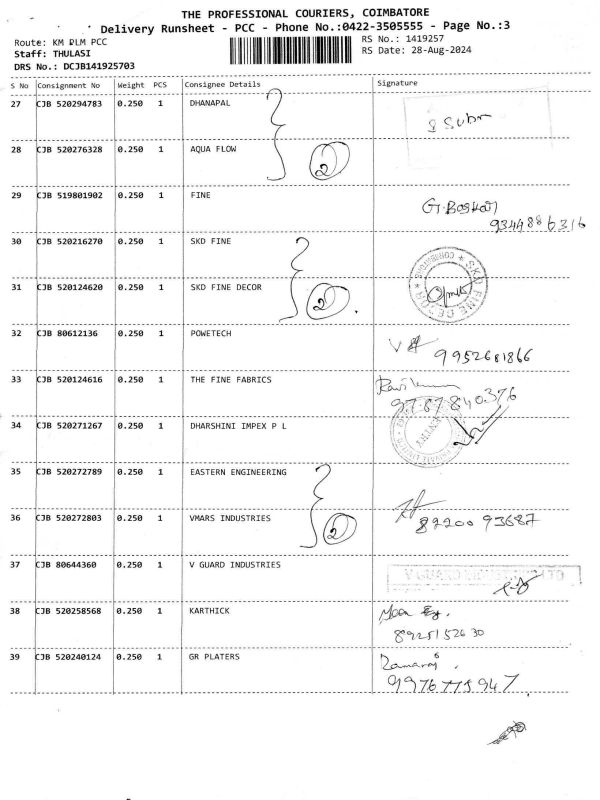 THE PROFESSIONAL COURIERS, COIMBATORE
Delivery Runsheet - PCC - Phone No.:0422-3505555 - Page No.:3
Route: KM PLM PCC
RS No.: 1419257
Staff: THULASI
RS Date: 28-Aug-2024
DRS No.: DCJB141925703
S No Consignment No Weight PCS Consignee Details Signature
27 CJB 520294783 0.250 1 DHANAPAL
28 CJB 520276328 0.250 1 AQUA FLOW 2
29 CJB 519801902 0.250 1 FINE
9344886316
30 CJB 520216270 0.250 1 SKD FINE
SKD FINE DECOR
31 CJB 520124620 0.250 1 SKD FINE DECOR 2
32 CJB 80612136 0.250 1 POWETECH
9952681866
33 CJB 520124616 0.250 1 THE FINE FABRICS
97.87840.376
34 CJB 520271267 0.250 1 DHARSHINI IMPEX P L
35 CJB 520272789 0.250 1 EASTERN ENGINEERING
36 CJB 520272803 0.250 1 VMARS INDUSTRIES 2 89200 93687
37 CJB 80644360 0.250 1 V GUARD INDUSTRIES
V GUARD INDUSTRIES LTD
38 CJB 520258568 0.250 1 KARTHICK
8925152630
39 CJB 520240124 0.250 1 GR PLATERS
9976775947